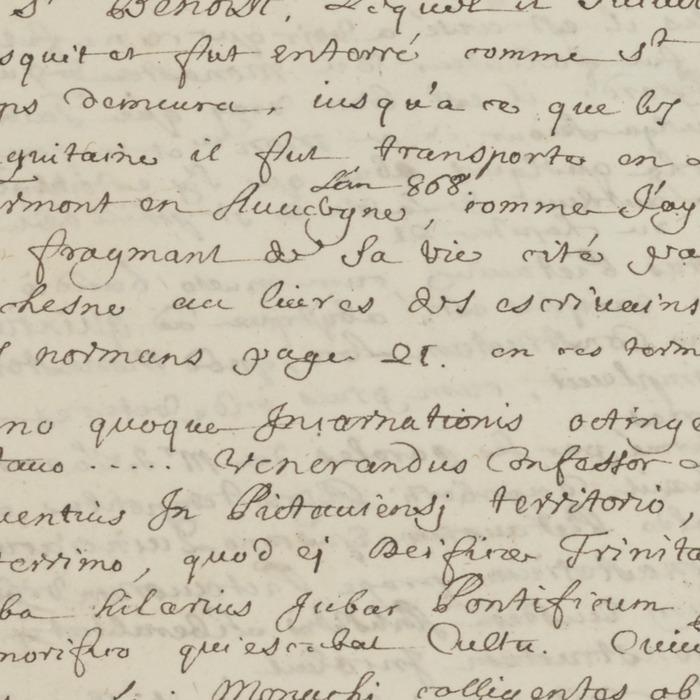 St Benoist, Lequel
squit et fut enterré comme St
ps demeura, iusqu'a ce que les
quitaine il fut transporté en
L'an 868.
rmont en Auuergne, comme J'ay
fragmant de sa vie cité pa
chesne au liures des escriuains
normans page 21. en ces term
no quoque Incarnationis octinge
tauo ..... Venerandus Confessor
uentius In Pictauiensj territorio,
terrimo, quod ej Deificæ Trinita
ba hilarius Jubar Pontificum
norifico quiescebat Cultu.
Monachi colligentes ab